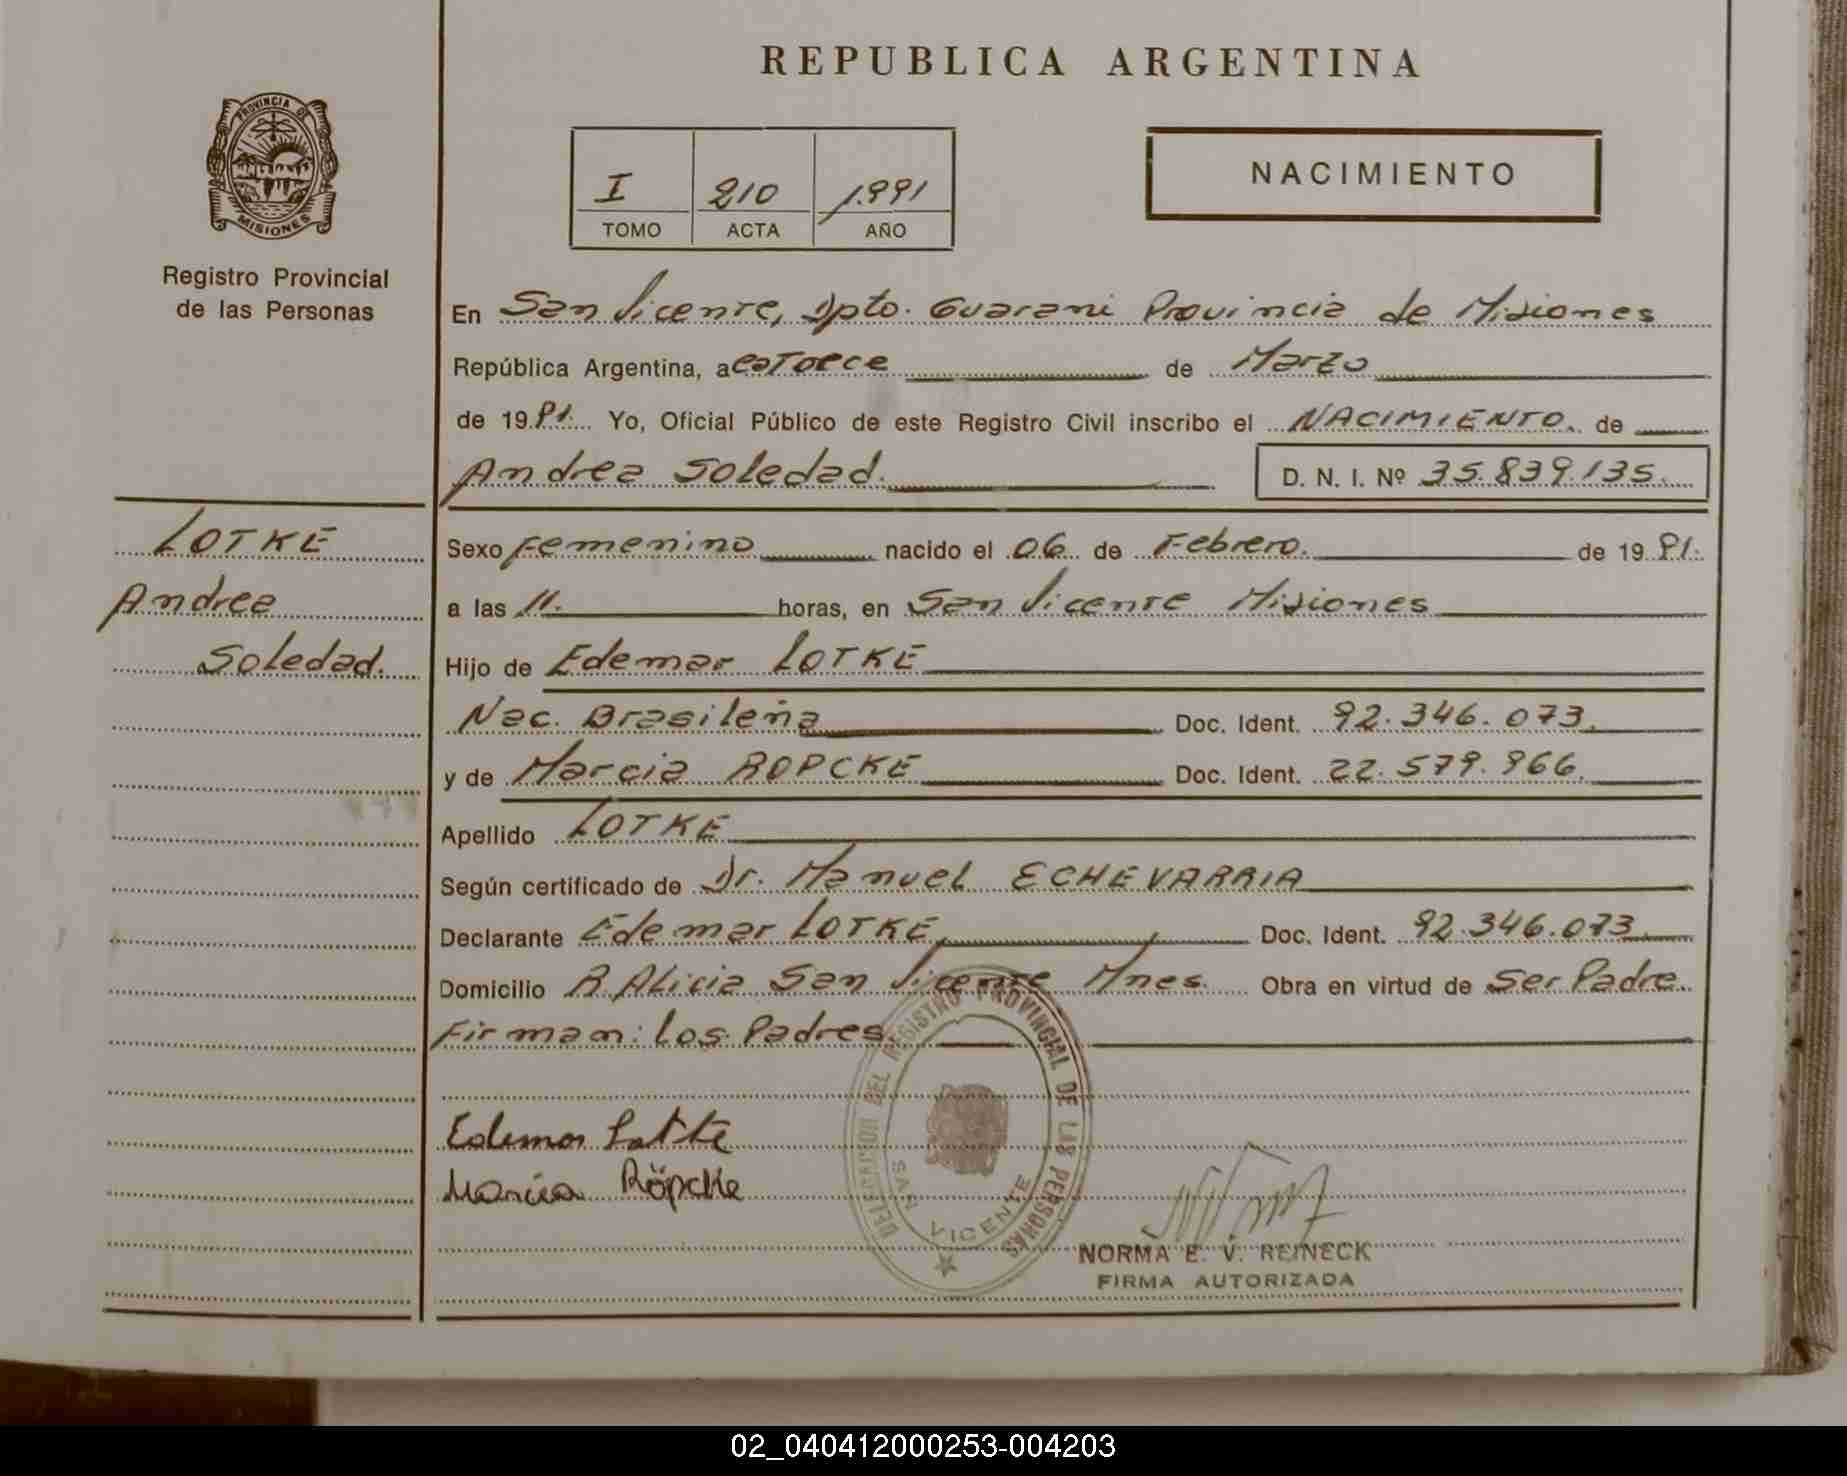 REPUBLICA ARGENTINA
PROVINCIA DE
MISIONES
Registro Provincial
de las Personas
I 210 1.991
TOMO ACTA AÑO
NACIMIENTO
En San Vicente, Dpto. Guarani Provincia de Misiones
República Argentina, a catorce de Marzo
de 1991. Yo, Oficial Público de este Registro Civil inscribo el NACIMIENTO. de
Andrea Soledad. D. N. I. Nº 35.839.135.
LOTKE
Andrea
Soledad.
Sexo Femenino nacido el 06 de Febrero. de 1991.
a las 11. horas, en San Vicente Misiones
Hijo de Edemar LOTKE
Nac. Brasileña Doc. Ident. 92.346.073.
y de Marcia ROPCKE Doc. Ident. 22.579.966.
Apellido LOTKE
Según certificado de Dr. Manuel ECHEVARRIA
Declarante Edemar LOTKE, Doc. Ident. 92.346.073
Domicilio R. Alicia San Vicente Mnes. Obra en virtud de Ser Padre.
Firman: Los Padres
DELEGACION DEL REGISTRO PROVINCIAL DE LAS PERSONAS
SAN VICENTE
Edemar Lotke
Marcia Röpcke
NORMA E. V. REINECK
FIRMA AUTORIZADA
02_040412000253-004203